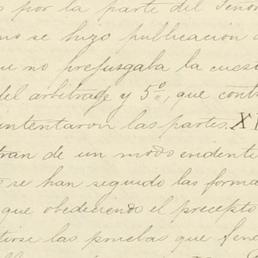 por la parte del Seño
no se hizo publicacion
no prejusgaba la cues
del arbitrage y 5º, que cont
intentaron las partes. X
tran de un modo evidente
se han seguido las forma
que obedeciendo el precepto
las pruebas que